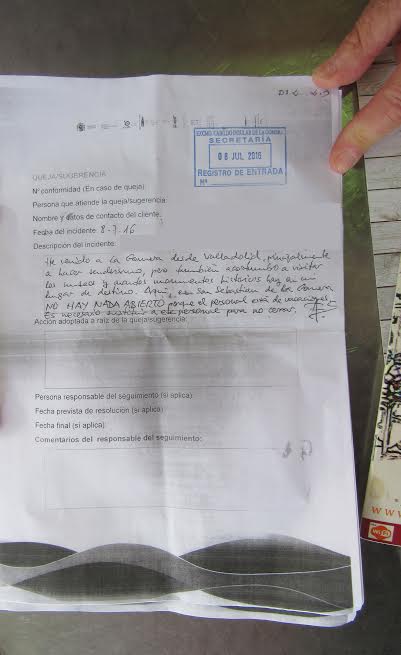 EXCMO. CABILDO INSULAR DE LA GOMERA
SECRETARÍA
08 JUL. 2016
REGISTRO DE ENTRADA
Nº
QUEJA/SUGERENCIA
Nº conformidad (En caso de queja)
Persona que atiende la queja/sugerencia:
Nombre y datos de contacto del cliente:
Fecha del incidente: 8-7-16
Descripción del incidente:
He venido a la Gomera desde Valladolid, principalmente
a hacer senderismo, pero también acostumbro a visitar
los museos y cuantos monumentos históricos hay en un
lugar de destino. Aquí, en San Sebastián de la Gomera
NO HAY NADA ABIERTO porque el personal está de vacaciones
Es necesario sustituir a ese personal para no cerrar.
Acción adoptada a raíz de la queja/sugerencia:
Persona responsable del seguimiento (si aplica):
Fecha prevista de resolución (si aplica)
Fecha final (si aplica):
Comentarios del responsable del seguimiento:
WiFi